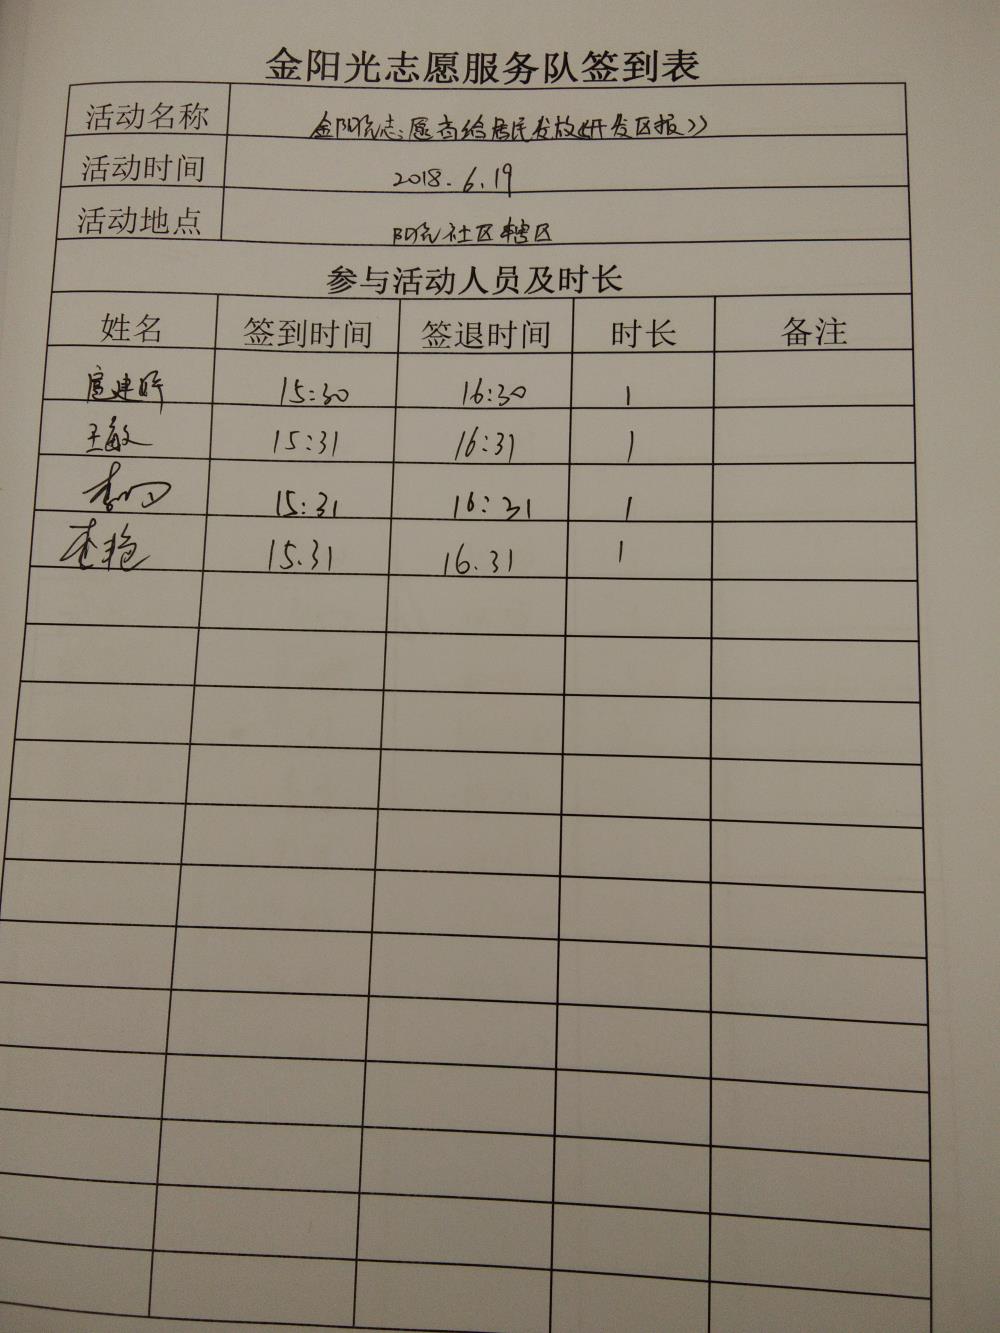 金阳光志愿服务队签到表
活动名称 金阳光志愿者给居民发放《开发区报》
活动时间 2018.6.19
活动地点 阳光社区辖区
参与活动人员及时长
姓名 签到时间 签退时间 时长 备注
建 15:30 16:30 1
王敏 15:31 16:31 1
李 15:31 16:31 1
李艳 15.31 16.31 1